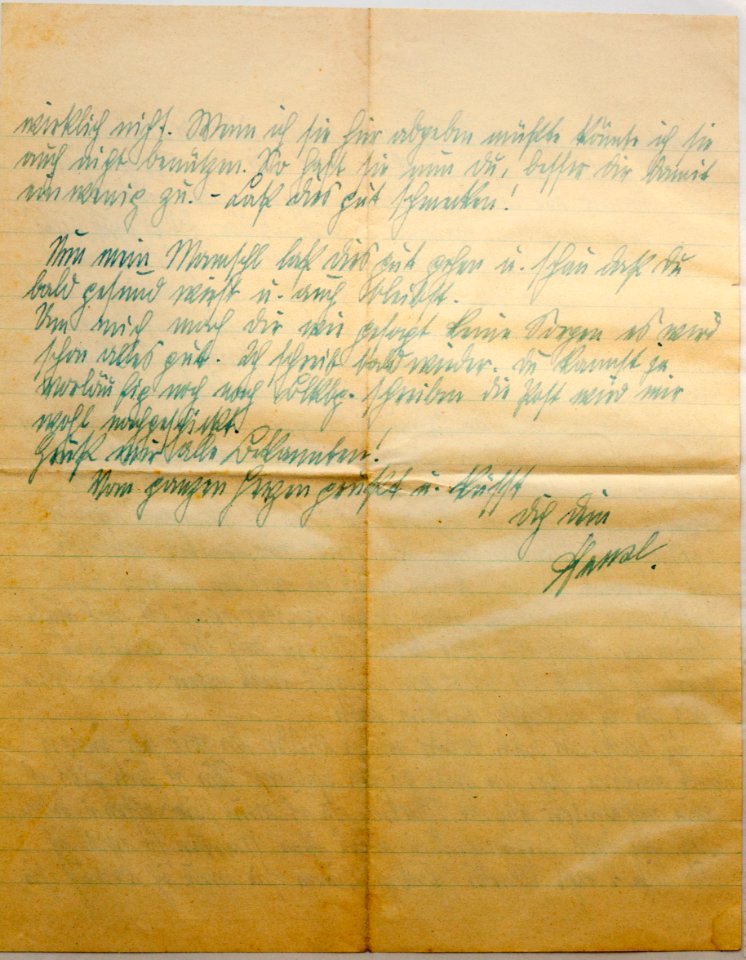 wirklich nicht. Wenn ich sie hier abgeben müßte könnte ich sie
auch nicht benützen. So hast sie nun du, besser dir damit
ein wenig zu. - Laß dirs gut schmecken!
Nun mein Mamschl laß dirs gut gehen u. schau daß du
bald gesund wirst u. auch bleibst.
Um mich mach dir wie gesagt keine Sorgen es wird
schon alles gut. Ich schreib bald wieder. Du kannst ja
vorläufig noch nach schreiben die Post wird mir
wohl nachgeschickt.
Grüß mir alle Bekannten!
Vom ganzen Herzen grüßt u. küsst
dich dein
Hansl.